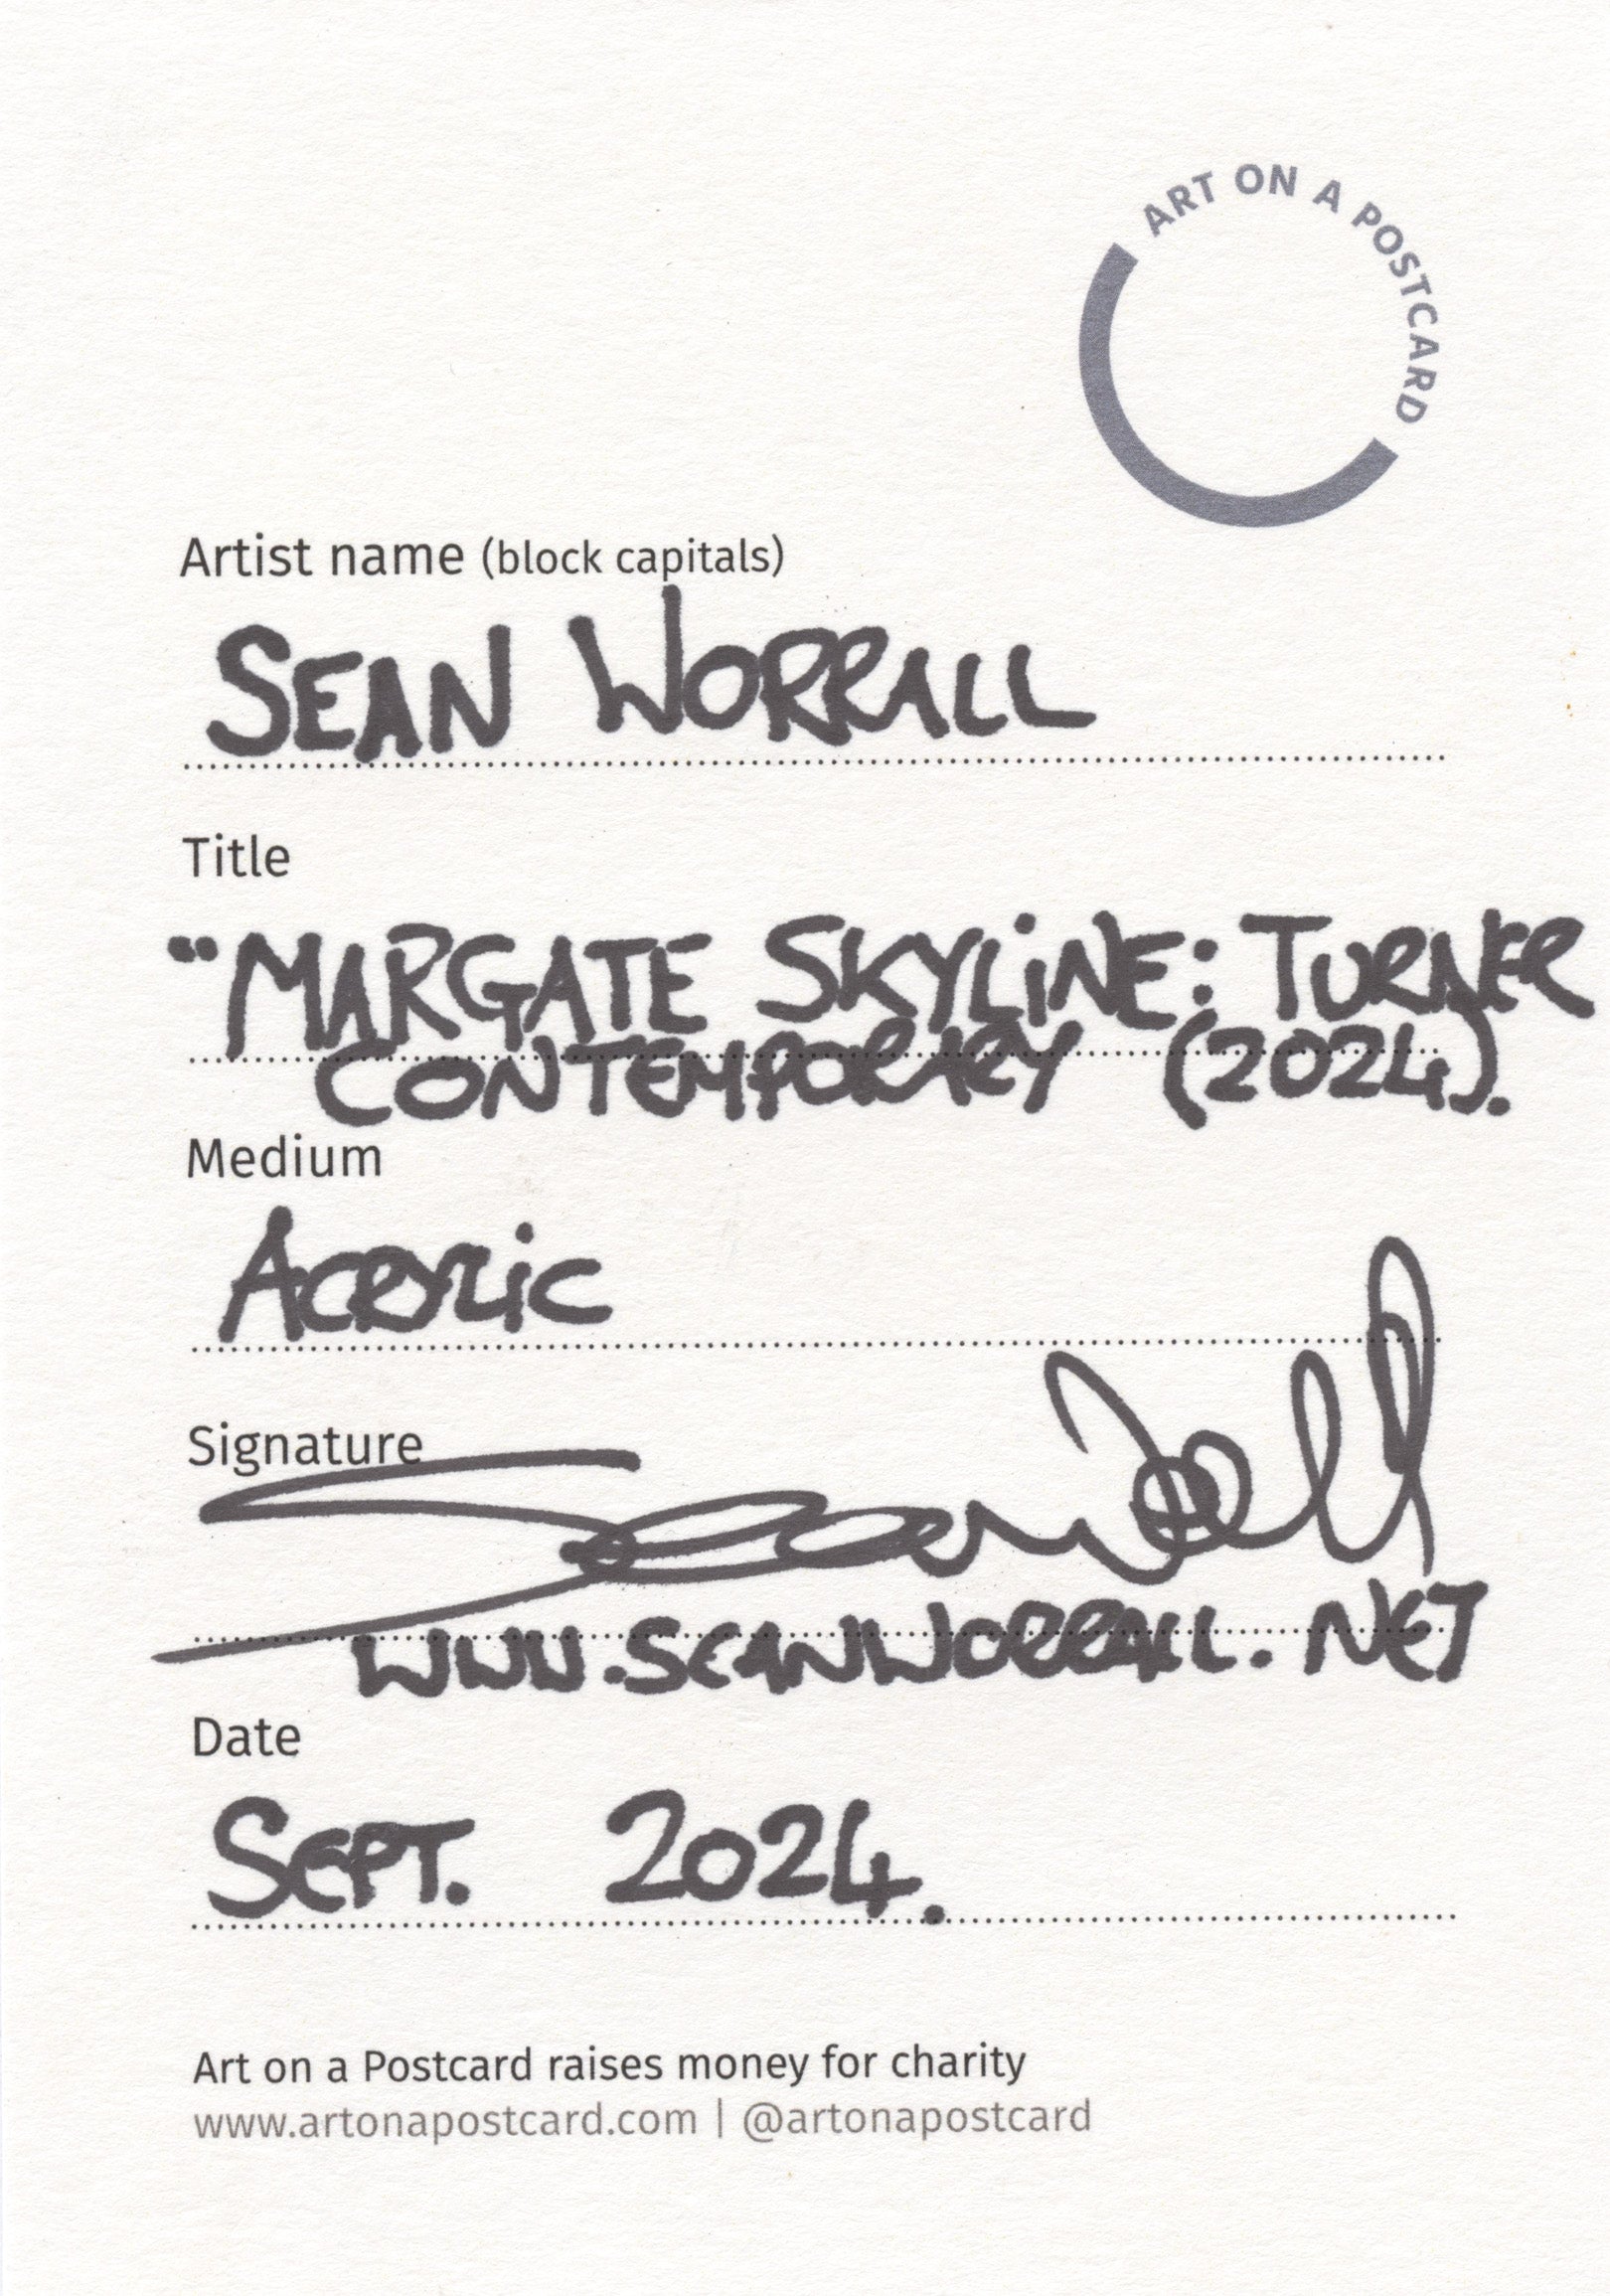 ART ON A POSTCARD
Artist name (block capitals)
SEAN WORRALL
Title
“MARGATE SKYLiNE: TURNER
CONTEMPORARY (2024).
Medium
ACRYLiC
Signature
www.SEANWORRALL.NET
Date
SEPT. 2024.
Art on a Postcard raises money for charity
www.artonapostcard.com | @artonapostcard